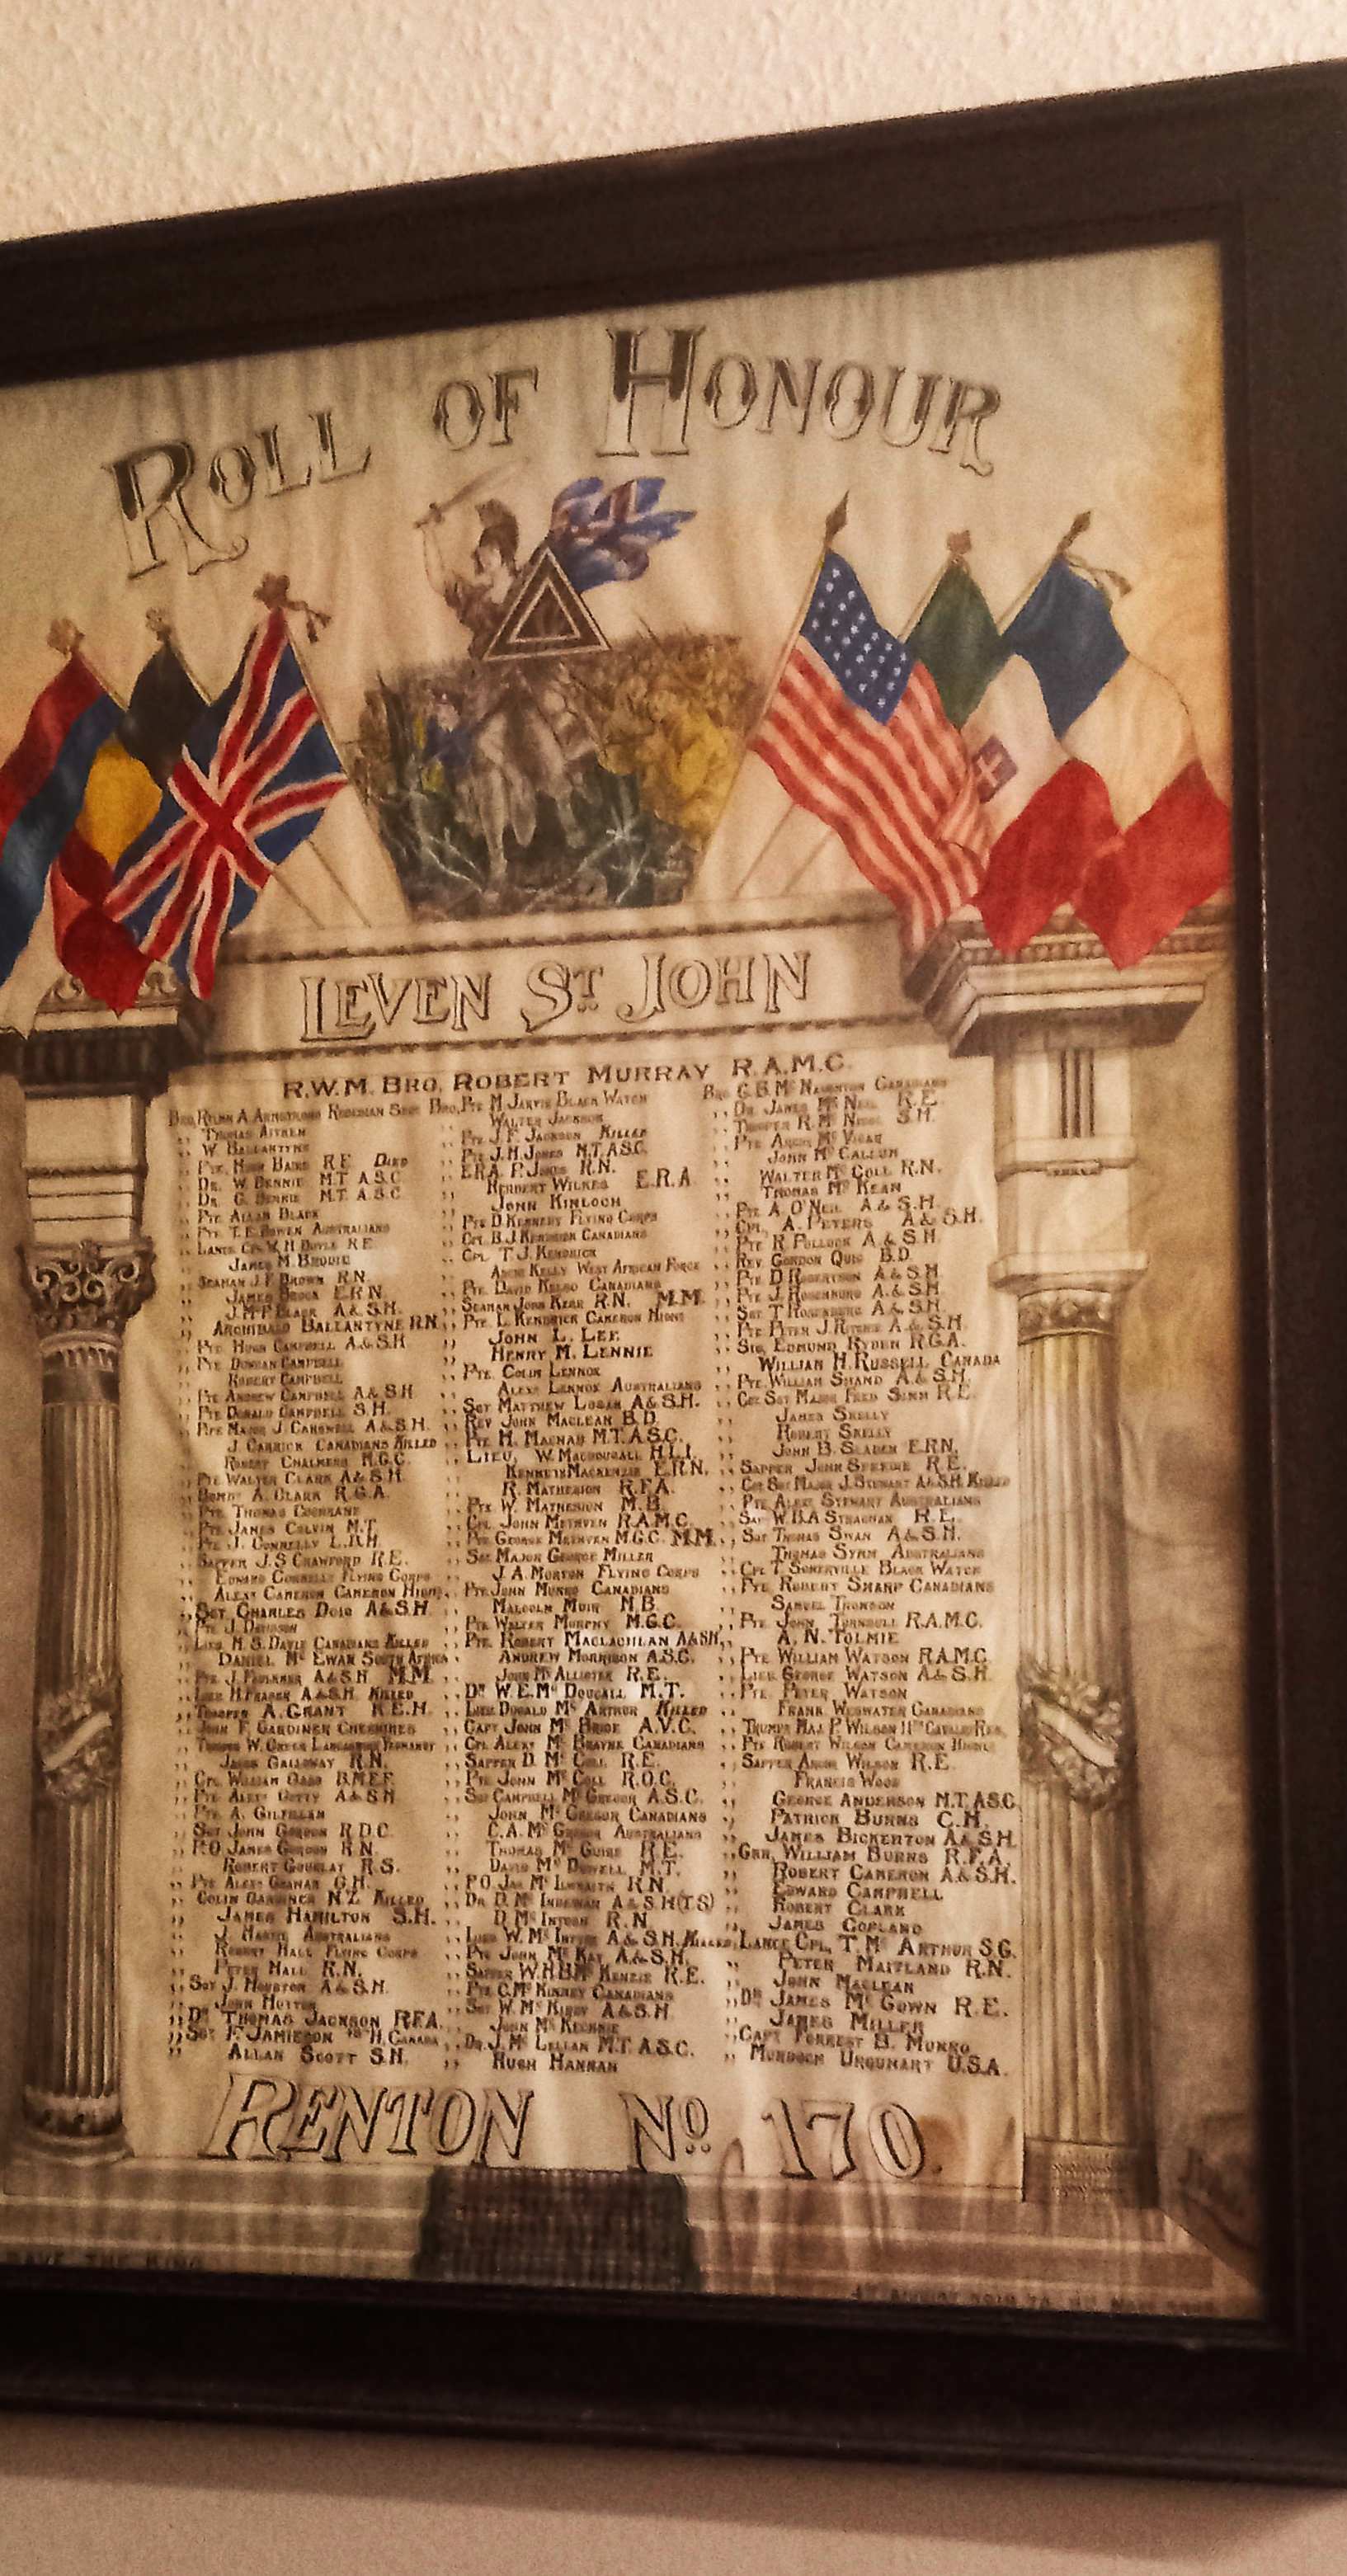 ROLL OF HONOUR
LEVEN ST. JOHN
R.W.M. BRO. ROBERT MURRAY R.A.M.C.
THOMAS AITKEN
W BALLANTYNE
PTE. HUGH BAIRD R.E DIED
DR. W. BENNIE M.T A.S.C
DR. G. BENNIE M.T. A.S.C
PTE ALLAN BLACK
PTE T.E. BOWEN AUSTRALIANS
LANCE CPL W.H BOYLE R.E
JAMES M. BRODIE
SEAMAN J.F. BROWN R.N.
JAMES BROCK E.R.N.
J. McP. BLACK A&S.H.
ARCHIBALD BALLANTYNE R.N.
PTE HUGH CAMPBELL A&S.H
PTE DUNCAN CAMPBELL
ROBERT CAMPBELL
PTE ANDREW CAMPBELL A&S.H
PTE DONALD CAMPBELL S.H.
PIPE MAJOR J. CARSWELL A&S.H.
J. CARRICK CANADIANS KILLED
ROBERT CHALMERS M.G.C.
PTE WALTER CLARK A&S.H.
BOMDR A. CLARK R.G.A.
PTE THOMAS COCHRANE
PTE JAMES COLVIN M.T.
PTE J. CONNELLY L.R.H.
SAPPER J.S CRAWFORD R.E.
EDWARD CONNELLY FLYING CORPS
ALEXR CAMERON CAMERON HIGHRS
SGT. CHARLES DOIG A&S.H.
PTE J. DAVIDSON
LIEU. H.S. DAVIE CANADIANS KILLED
DANIEL Mc EWAN SOUTH AFRICA
PTE J. FAULKNER A&S.H M.M.
LIEU H. FRASER A&S.H. KILLED
TROOPER A. GRANT R.E.H.
JOHN F. GARDINER CHESHIRES
JAMES GALLOWAY R.N.
CPL WILLIAM GABB B.M.E.F.
PTE A. GILFILLAN
SGT JOHN GORDON R.D.C.
P.O JAMES GORDON R.N.
ROBERT GOURLAY R.S.
PTE ALEXR GRAHAM G.H.
COLIN GARDINER N.Z. KILLED
JAMES HAMILTON S.H.
J. HARVIE AUSTRALIANS
ROBERT HALL FLYING CORPS
PETER HALL R.N.
SGT J. HOUSTON A&S.H.
JOHN HUTTON
DR THOMAS JACKSON R.F.A.
SGT F. JAMIESON H. CANADA
ALLAN SCOTT S.H.
BRO. PTE M. JARVIE BLACK WATCH
WALTER JACKSON
PTE J.F. JACKSON KILLED
PTE J.H. JONES M.T. A.S.C.
E.R.A. P. JONES R.N.
HERBERT WILKES E.R.A
JOHN KINLOCH
PTE D. KENNEDY FLYING CORPS
CPL B.J. KENDRICK CANADIANS
CPL T.J. KENDRICK
ARCHD KELLY WEST AFRICAN FORCE
PTE DAVID KELSO CANADIANS
SEAMAN JOHN KERR R.N. M.M.
PTE L. KENDRICK CAMERON HIGHS
JOHN L. LEE
HENRY M. LENNIE
PTE COLIN LENNOX
ALEXR LENNOX AUSTRALIANS
SGT MATTHEW LOGAN A&S.H.
REV JOHN MACLEAN B.D.
PTE H. MACNAB M.T.A.S.C.
LIEU. W. MACDOUGALL H.L.I.
KENNETH MACKENZIE E.R.N.
R. MATHESION R.F.A.
PTE W. MATHESION M.B.
CPL JOHN METHVEN R.A.M.C.
PTE GEORGE METHVEN M.G.C. M.M.
SGT MAJOR GEORGE MILLER
J.A. MORTON FLYING CORPS
PTE JOHN MUNRO CANADIANS
MALCOLM MUIR M.B.
PTE WALTER MURPHY M.G.C.
PTE. ROBERT MACLACHLAN A&SH
ANDREW MORRISON A.S.C.
JOHN Mc ALLISTER R.E.
DR W.E. Mc DOUGALL M.T.
LIEU DUGALD Mc ARTHUR KILLED
CAPT JOHN Mc BRIDE A.V.C.
CPL ALEXR Mc BRAYNE CANADIANS
SAPPER D. Mc COLL R.E.
PTE JOHN Mc COLL R.O.C.
SGT CAMPBELL Mc GREGOR A.S.C.
JOHN Mc GREGOR CANADIANS
C.A. Mc GREGOR AUSTRALIANS
THOMAS Mc GUIRE R.E.
DAVID Mc DOWELL M.T.
P.O. JAS Mc ILWRAITH R.N.
D. Mc INTOSH R.N
LIEU W. Mc INTYRE A&S.H. KILLED
PTE JOHN Mc KAY A&S.H.
SAPPER W.H.B. Mc KENZIE R.E.
PTE C. Mc KINNEY CANADIANS
SGT W. Mc KIRDY A&S.H
JOHN Mc KECHNIE
DR. J. Mc LELLAN M.T. A.S.C.
HUGH HANNAH
BRO. G.B. Mc NAUGHTON CANADIANS
DR. JAMES Mc NEIL R.E.
TROOPER R. Mc NICOL S.H.
PTE ANGUS Mc VICAR
JOHN Mc CALLUM
WALTER Mc COLL R.N.
THOMAS Mc KEAN
PTE A. O'NEIL A&S.H.
CPL. A. PETERS A&S.H.
PTE R. POLLOCK A&S.H.
REV. GORDON QUIG B.D.
PTE D. ROBERTSON A&S.H
PTE J. ROSENBURG A.&S.H
SGT T. ROSENBURG A&S.H.
PTE PETER J. RITCHIE A&S.H.
SIG. EDMUND RYDEN R.G.A.
WILLIAN H. RUSSELL CANADA
PTE. WILLIAM SHAND A&S.H.
COY SGT MAJOR FRED SIMM R.E.
JAMES SKELLY
ROBERT SKELLY
JOHN B. SLADEN E.R.N.
SAPPER JOHN SPEIRIE R.E.
COY SGT MAJOR J. STEWART A&S.H. KILLED
PTE ALEXR STEWART AUSTRALIANS
SAP W.B.A STRACHAN R.E.
SGT THOMAS SWAN A&S.H.
THOMAS SYMM AUSTRALIANS
CPL T. SOMERVILLE BLACK WATCH
PTE ROBERT SHARP CANADIANS
SAMUEL THOMSON
PTE JOHN TURNBULL R.A.M.C.
A.N. TOLMIE
PTE WILLIAM WATSON R.A.M.C.
LIEU. GEORGE WATSON A&S.H.
PTE PETER WATSON
FRANK WESWATER CANADIANS
PTE ROBERT WILSON CAMERON HIGHRS
SAPPER ANGUS WILSON R.E.
FRANCIS WOOD
GEORGE ANDERSON M.T. A.S.C.
PATRICK BURNS C.H.
JAMES BICKERTON A&S.H.
GNR. WILLIAM BURNS R.F.A.
ROBERT CAMERON A&S.H.
EDWARD CAMPBELL
ROBERT CLARK
JAMES COPLAND
LANCE CPL. T. Mc ARTHUR S.G.
PETER MAITLAND R.N.
JOHN MACLEAN
DR JAMES Mc GOWN R.E.
JAMES MILLER
CAPT FORREST B. MUNRO
MURDOCH URQUHART U.S.A.
RENTON NO. 170.